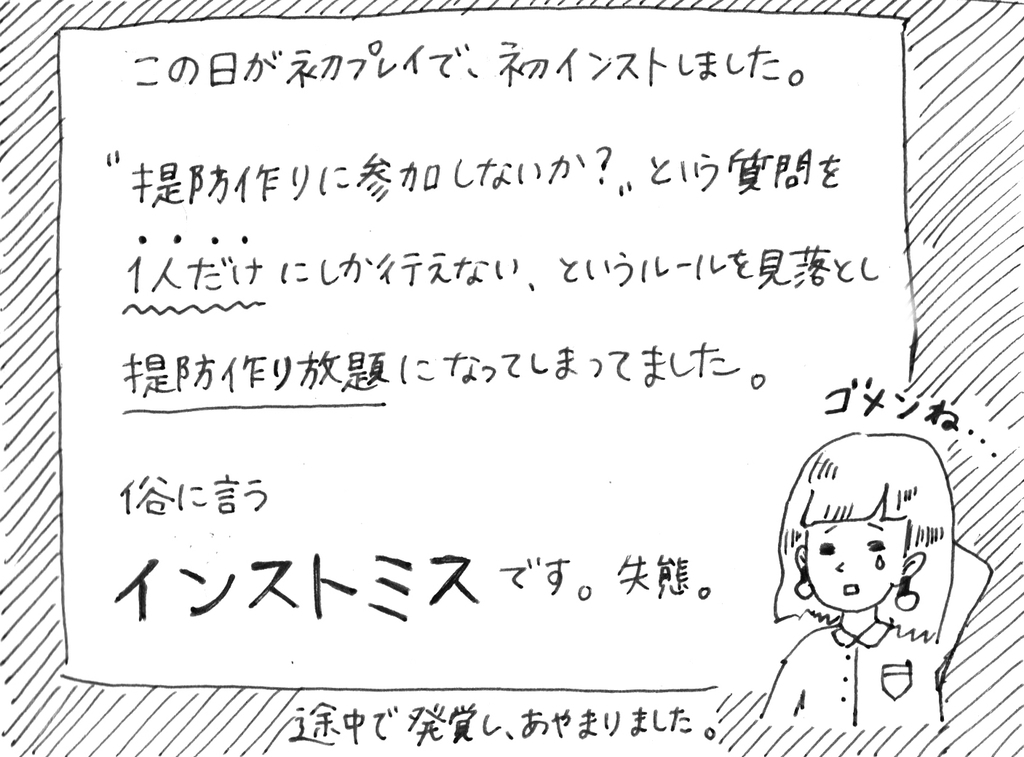 この日が初プレイで、初インストしました。
"提防作りに参加しないか?"という質問を
1人だけにしか行えない、というルールを見落とし
提防作り放題になってしまってました。
俗に言う
インストミスです。失態。
ゴメンね...
途中で発覚し、あやまりました。